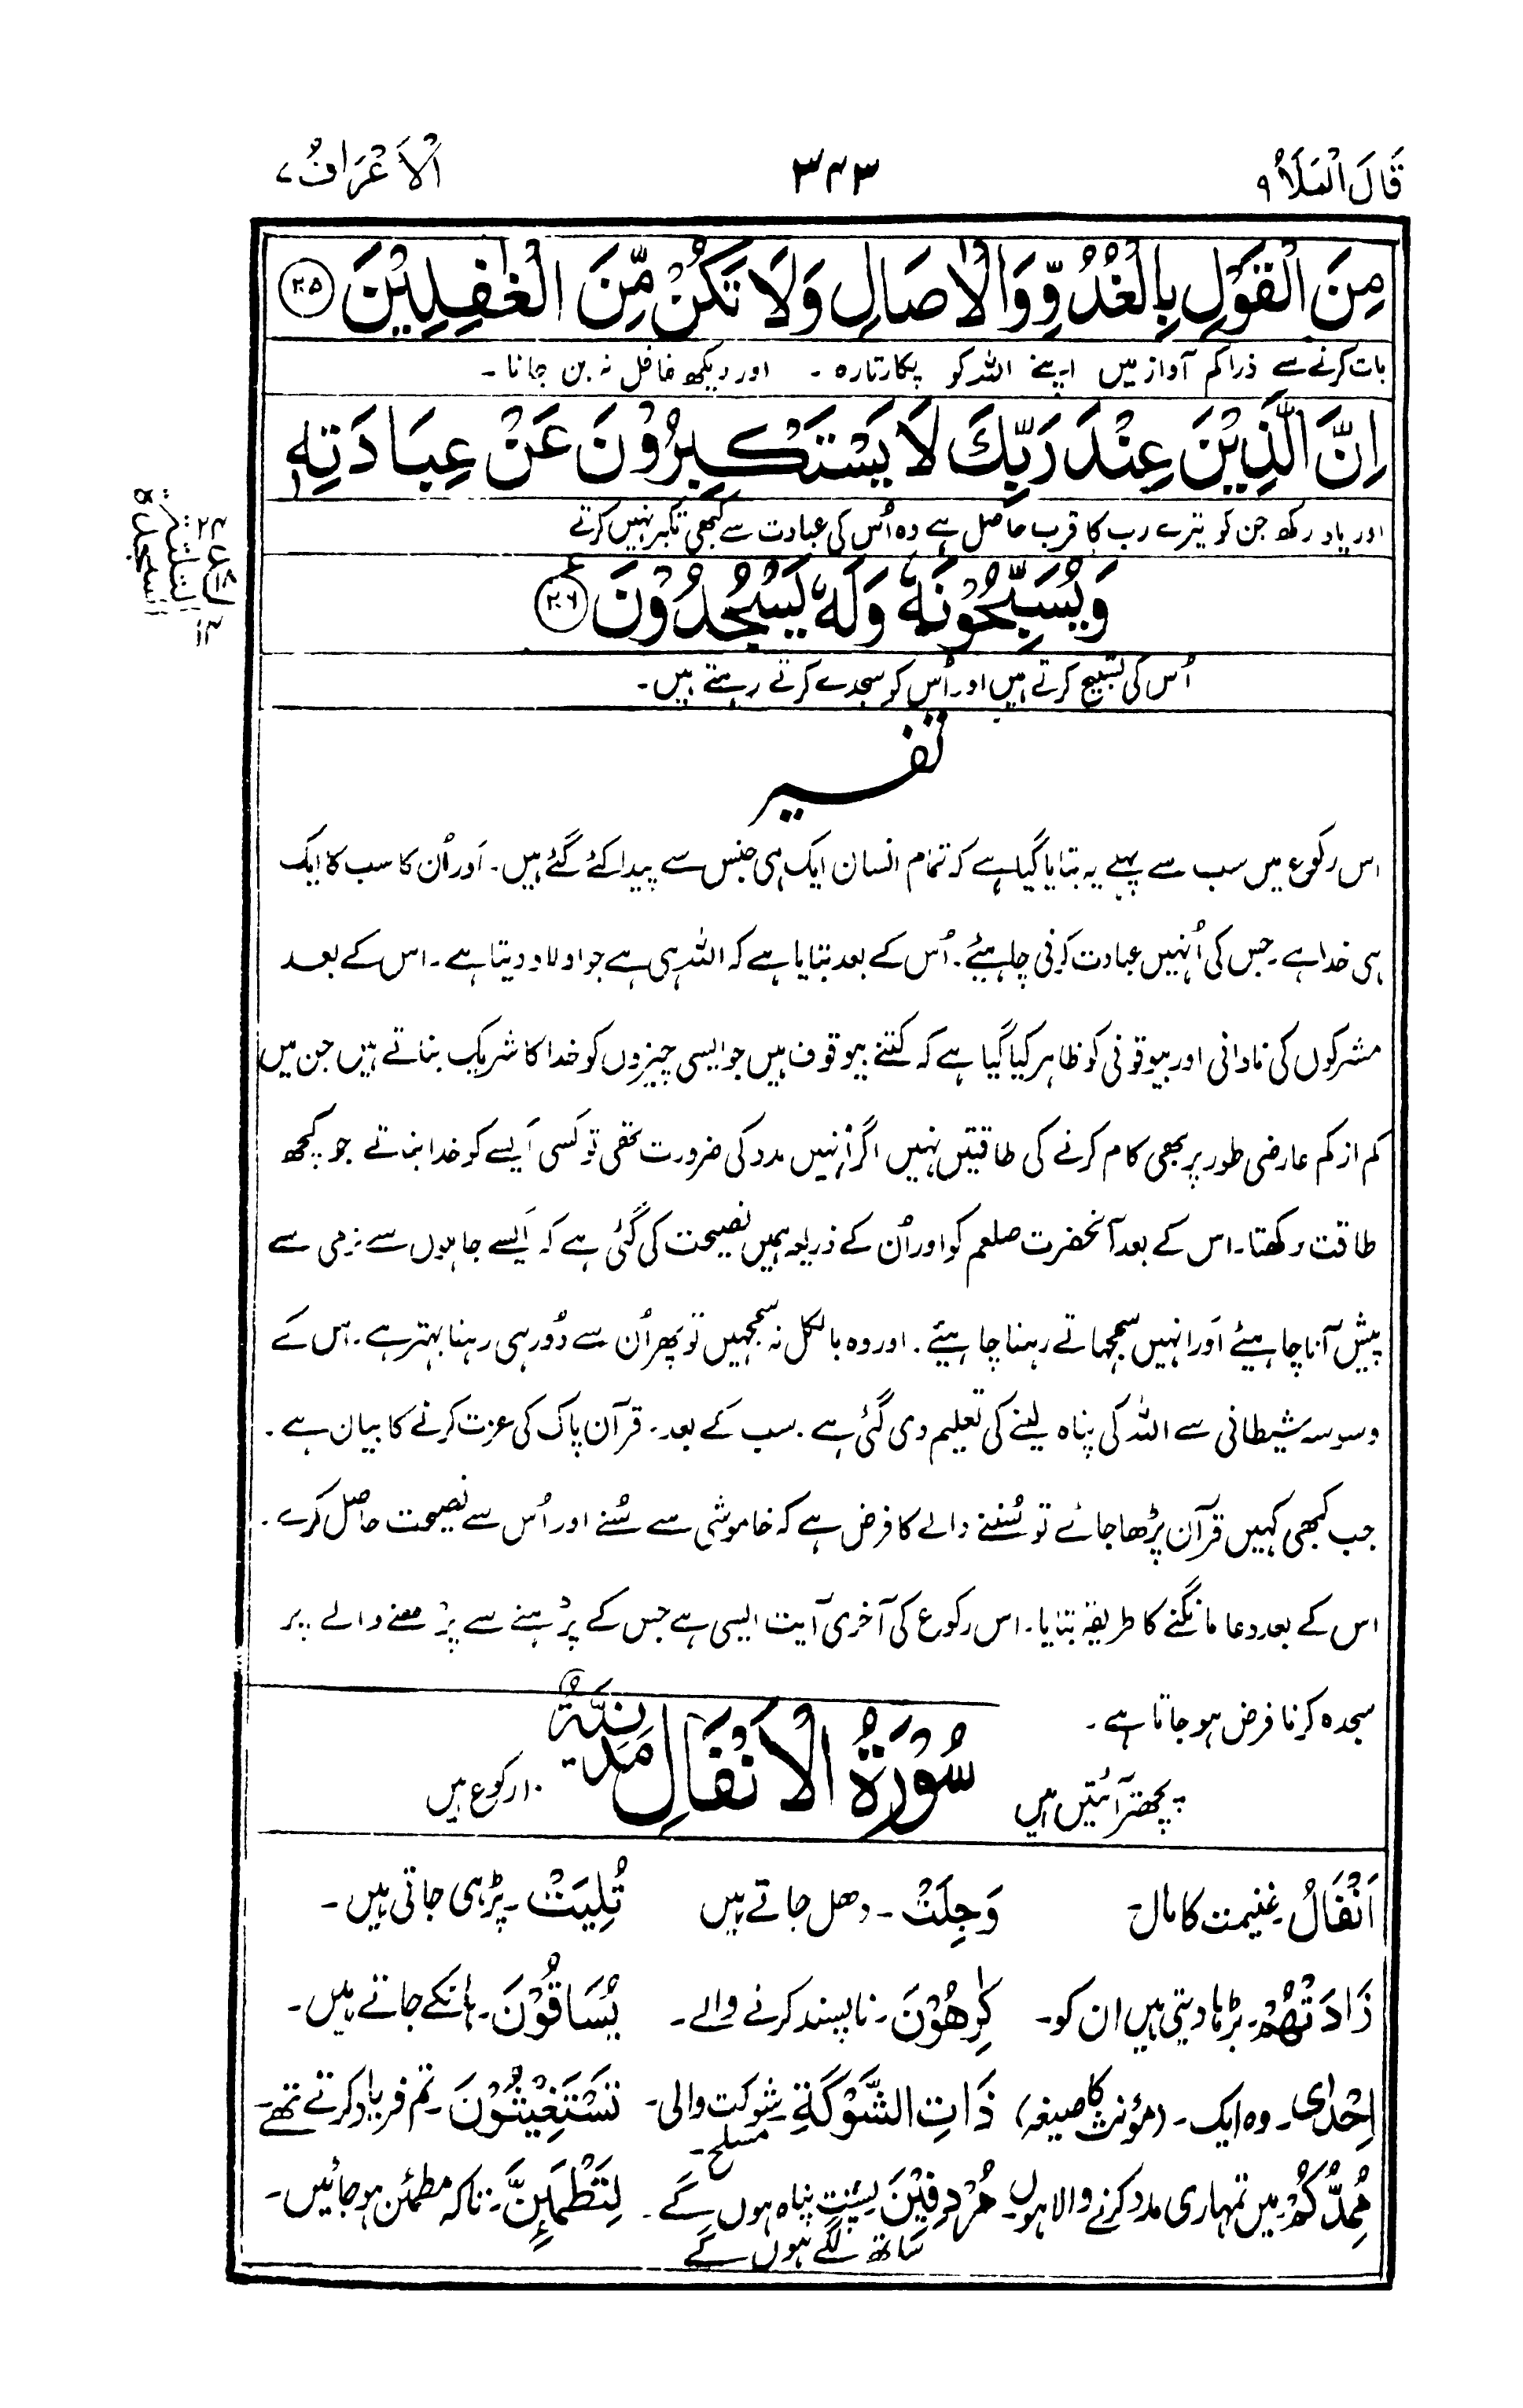 قَالَ الْمَلَاُ ۹
۳۴۳
اَلْاَعْرَافُ ۷
مِنَ الْقَوْلِ بِالْغُدُوِّ وَالْاٰصَالِ وَلَا تَكُنْ مِّنَ الْغٰفِلِيْنَ ۲۰۵
بات کرنے سے ذرا کم آواز میں اپنے اللہ کو پکارتا رہ ۔ اور دیکھ غافل نہ بن جانا ۔
اِنَّ الَّذِيْنَ عِنْدَ رَبِّكَ لَا يَسْتَكْبِرُوْنَ عَنْ عِبَادَتِهٖ
اور یاد رکھ جن کو تیرے رب کا قرب حاصل ہے وہ اُس کی عبادت سے کبھی تکبر نہیں کرتے
وَيُسَبِّحُوْنَهٗ وَلَهٗ يَسْجُدُوْنَ ۲۰۶
اُس کی تسبیح کرتے ہیں اور اُس کو سجدے کرتے رہتے ہیں ۔
تفسیر
اس رکوع میں سب سے پہلے یہ بتایا گیا ہے کہ تمام انسان ایک ہی جنس سے پیدا کئے گئے ہیں ۔ اَور اُن کا سب کا ایک
ہی خدا ہے ۔ جس کی اُنہیں عبادت کرنی چاہیئے ۔ اُس کے بعد بتایا ہے کہ اللہ ہی ہے جو اولاد دیتا ہے ۔ اس کے بعد
مشرکوں کی نادانی اور بیوقوفی کو ظاہر کیا گیا ہے کہ کتنے بیوقوف ہیں جو ایسی چیزوں کو خدا کا شریک بناتے ہیں جن میں
کم از کم عارضی طور پر بھی کام کرنے کی طاقتیں نہیں اگر اُنہیں مدد کی ضرورت تھی تو کسی اَیسے کو خدا بناتے جو کچھ
طاقت رکھتا ۔ اس کے بعد آنحضرت صلعم کو اور اُن کے ذریعہ ہمیں نصیحت کی گئی ہے کہ اَیسے جاہلوں سے نرمی سے
پیش آنا چاہیئے اَور انہیں سمجھاتے رہنا چاہیئے ۔ اور وہ بالکل نہ سمجھیں تو پھر اُن سے دُور ہی رہنا بہتر ہے ۔ اس کے
وسوسہ شیطانی سے اللہ کی پناہ لینے کی تعلیم دی گئی ہے ۔ سب کے بعد ۔ قرآن پاک کی عزت کرنے کا بیان ہے ۔
جب کبھی کہیں قرآن پڑھا جائے تو سُننے والے کا فرض ہے کہ خاموشی سے سُنے اور اُس سے نصیحت حاصل کرے ۔
اس کے بعد دعا مانگنے کا طریقہ بتایا ۔ اس رکوع کی آخری آیت ایسی ہے جس کے پڑہنے سے پڑھنے والے پر
سجدہ کرنا فرض ہو جاتا ہے ۔
پچھتر آئتیں ہیں سُوْرَةُ الْاَنْفَالِ مَدَنِيَّةٌ ۱۰ رکوع ہیں
اَنْفَالُ ۔ غنیمت کا مال ۔ وَجِلَتْ ۔ دھل جاتے ہیں تُلِيَتْ ۔ پڑہی جاتی ہیں ۔
زَادَتْهُمْ ۔ بڑہا دیتی ہیں ان کو ۔ كٰرِهُوْنَ ۔ ناپسند کرنے والے ۔ يُسَاقُوْنَ ۔ ہانکے جاتے ہیں ۔
اِحْدَى ۔ وہ ایک ۔ (مؤنث کا صیغہ) ذَاتِ الشَّوْكَةِ ۔ شوکت والی ۔ مسلح ۔ تَسْتَغِيْثُوْنَ ۔ تم فریاد کرتے تھے ۔
مُمِدُّكُمْ ۔ میں تمہاری مدد کرنے والا ہوں ۔ مُرْدِفِيْنَ پشت پناہ ہوں گے ۔ لِتَطْمَئِنَّ ۔ تاکہ مطمئن ہو جائیں ۔
ساتھ لگے ہوں گے